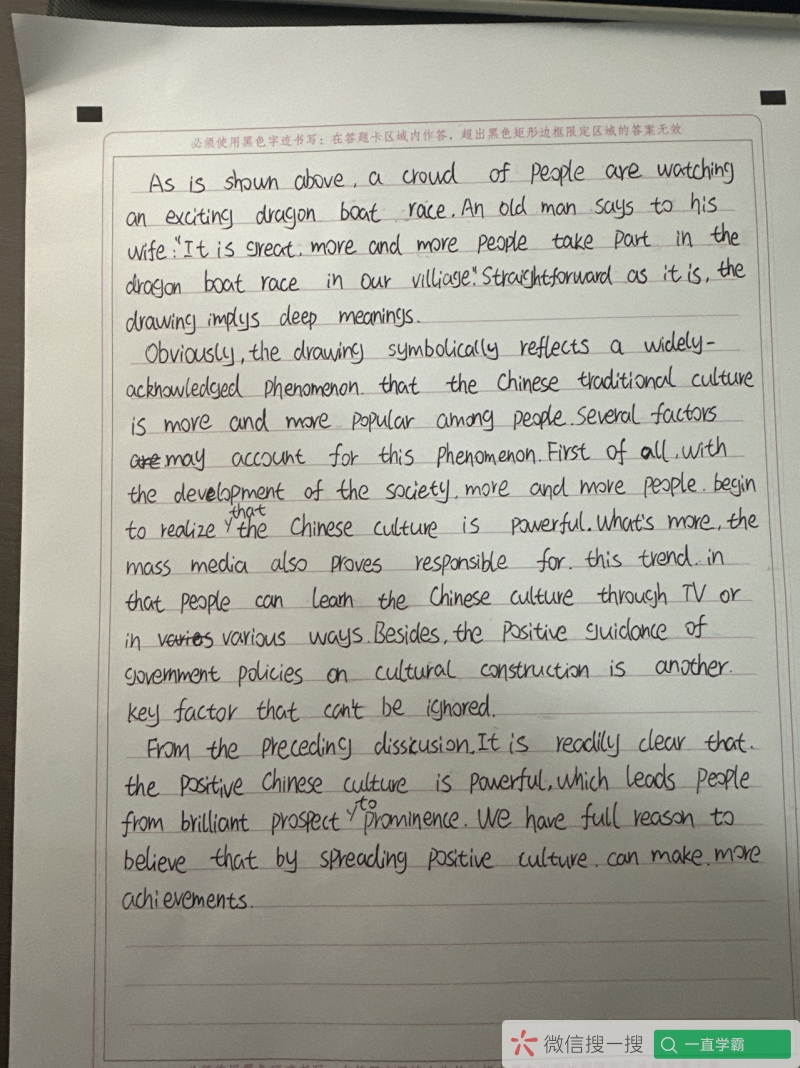 必须使用黑色字迹书写；在答题卡区域内作答，超出黑色矩形边框限定区域的答案无效
As is shown above, a croud of people are watching
an exciting dragon boat race. An old man says to his
wife:"It is great. more and more people take part in the
dragon boat race in our villiage." Straightforward as it is, the
drawing implys deep meanings.
Obviously, the drawing symbolically reflects a widely-
acknowledged phenomenon that the Chinese traditional culture
is more and more popular among people. Several factors
are may account for this phenomenon. First of all, with
the development of the society, more and more people begin
to realize that the Chinese culture is powerful. What's more, the
mass media also proves responsible for this trend in
that people can learn the Chinese culture through TV or
in varies various ways. Besides, the positive guidance of
government policies on cultural construction is another
key factor that can't be ignored.
From the preceding disscusion, It is readily clear that
the positive Chinese culture is powerful, which leads people
from brilliant prospect to prominence. We have full reason to
believe that by spreading positive culture can make more
achievements.
微信搜一搜
一直学霸